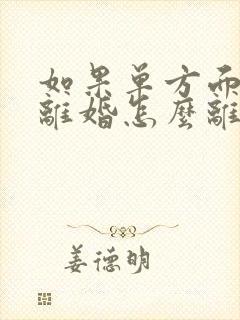 如果单方面
離婚怎麼離
姜德明